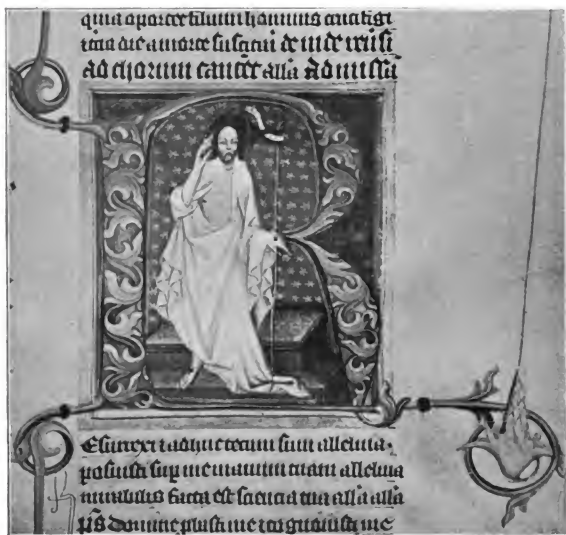 quia oportet filium hominis crucifigi
tercia die a morte suscitari deinde reuersi
ad chorum cantet alla Ad missa
R
Esurrexi et adhuc tecum sum alleluia.
posuisti sup me manum tuam alleluia
mirabilis facta est sciencia tua alla alla
ps Domine probasti me et cognouisti me